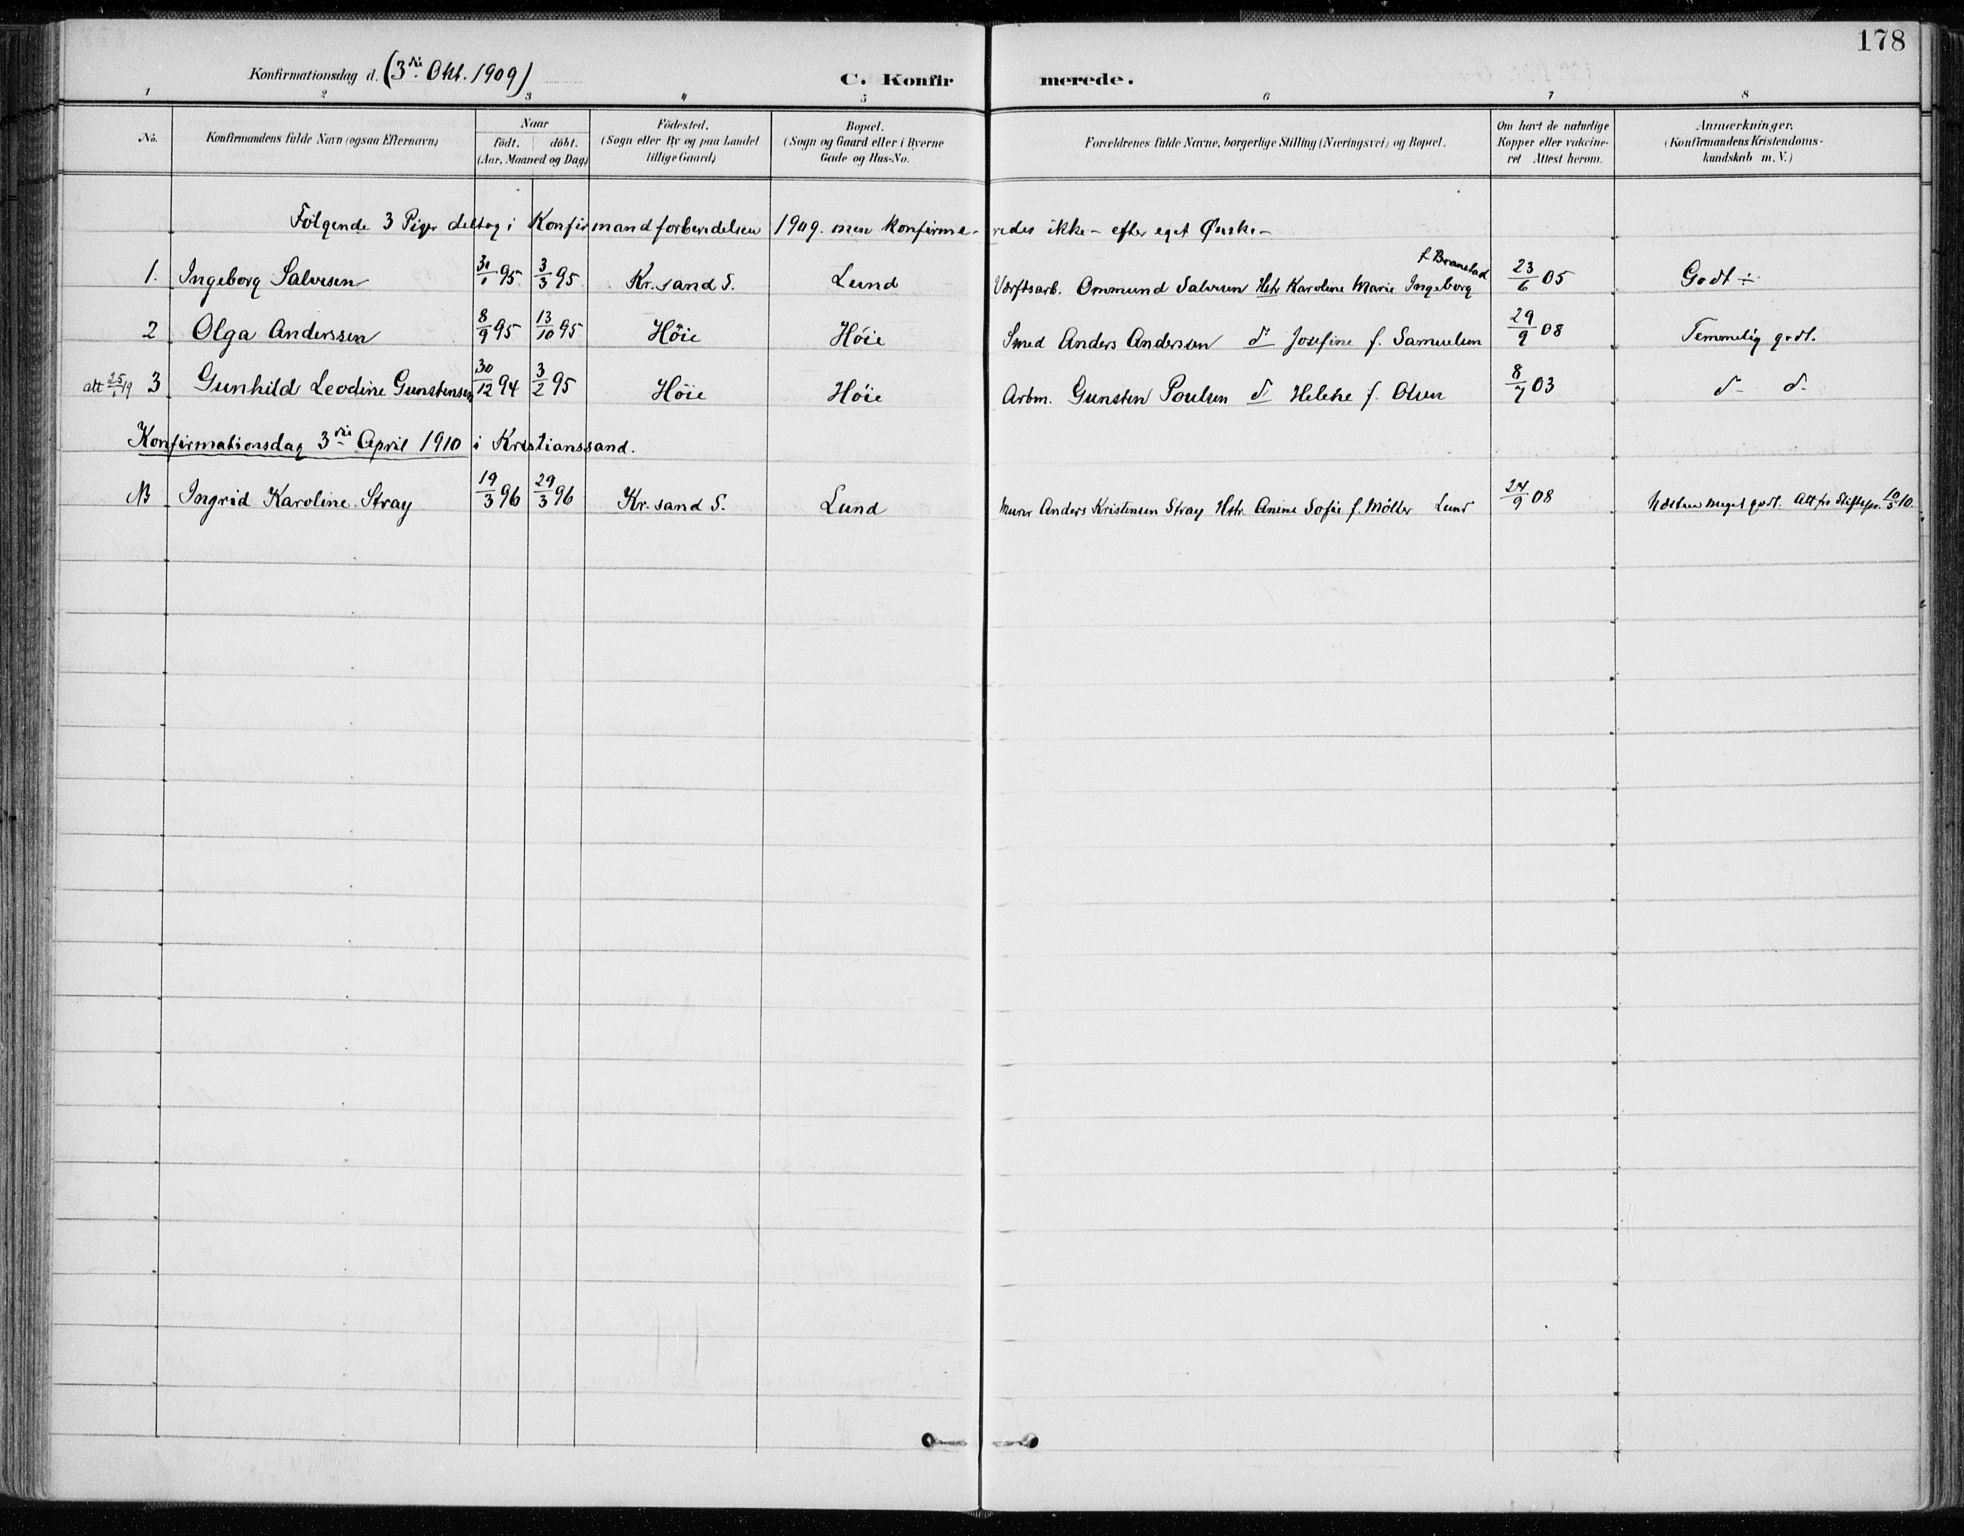 178
Konfirmationsdag d. (3die Okt. 1909) C. Konfirmerede.
1 2 3 4 5 6 7 8
No. Konfirmandens fulde Navn (ogsaa Efternavn) Naar født. døbt. (Aar, Maaned og Dag) Fødested. (Sogn eller By og paa Landet tillige Gaard) Bopæl. (Sogn og Gaard eller i Byerne Gade og Hus-No. Forældrenes fulde Navne, borgerlige Stilling (Næringsvei) og Bopæl. Om havt de naturlige Kopper eller vakcineret Attest herom. Anmærkninger. (Konfirmandens Kristendomskundskab m. V.)
Følgende 3 Piger deltog i Konfirmandforberedelsen 1909. men konfirmeredes ikke – efter eget Ønske –
1. Ingeborg Salvesen 31/1 95 3/3 95 Kr.sand S. Lund Værftsarb. Ommund Salvesen Hstr Karoline Marie Ingeborg f. Branstad 23/6 05 Godt ÷
2 Olga Anderssen 8/9 95 13/10 95 Høie Høie Smed Anders Anderssen do Josefine f. Samuelsen 29/9 08 Temmelig godt.
att 25/1 19 3 Gunhild Leodine Gunstensen 30/12 94 3/2 95 Høie Høie Arbm. Gunsten Poulsen do Helene f. Olsen 8/7 03 do do
Konfirmationsdag 3die April 1910 i Kristianssand.
NB Ingrid Karoline Stray 19/3 96 29/3 96 Kr.sand S. Lund Murer Anders Kristensen Stray Hstr. Anine Sofie f. Møller Lund 24/9 08 Næsten meget godt. Att fr Stiftspr. 10/5 10.